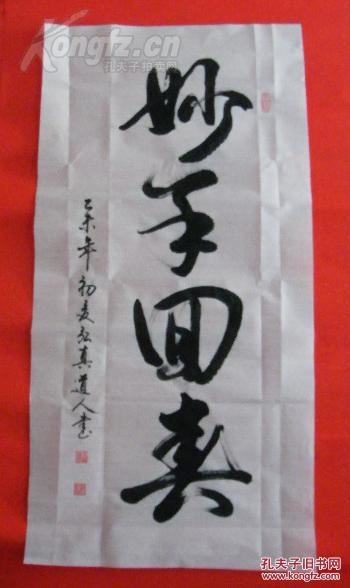 妙手回春
乙未年初夏玄真道人書
Kongfz.cn
孔夫子拍卖网
孔夫子旧书网